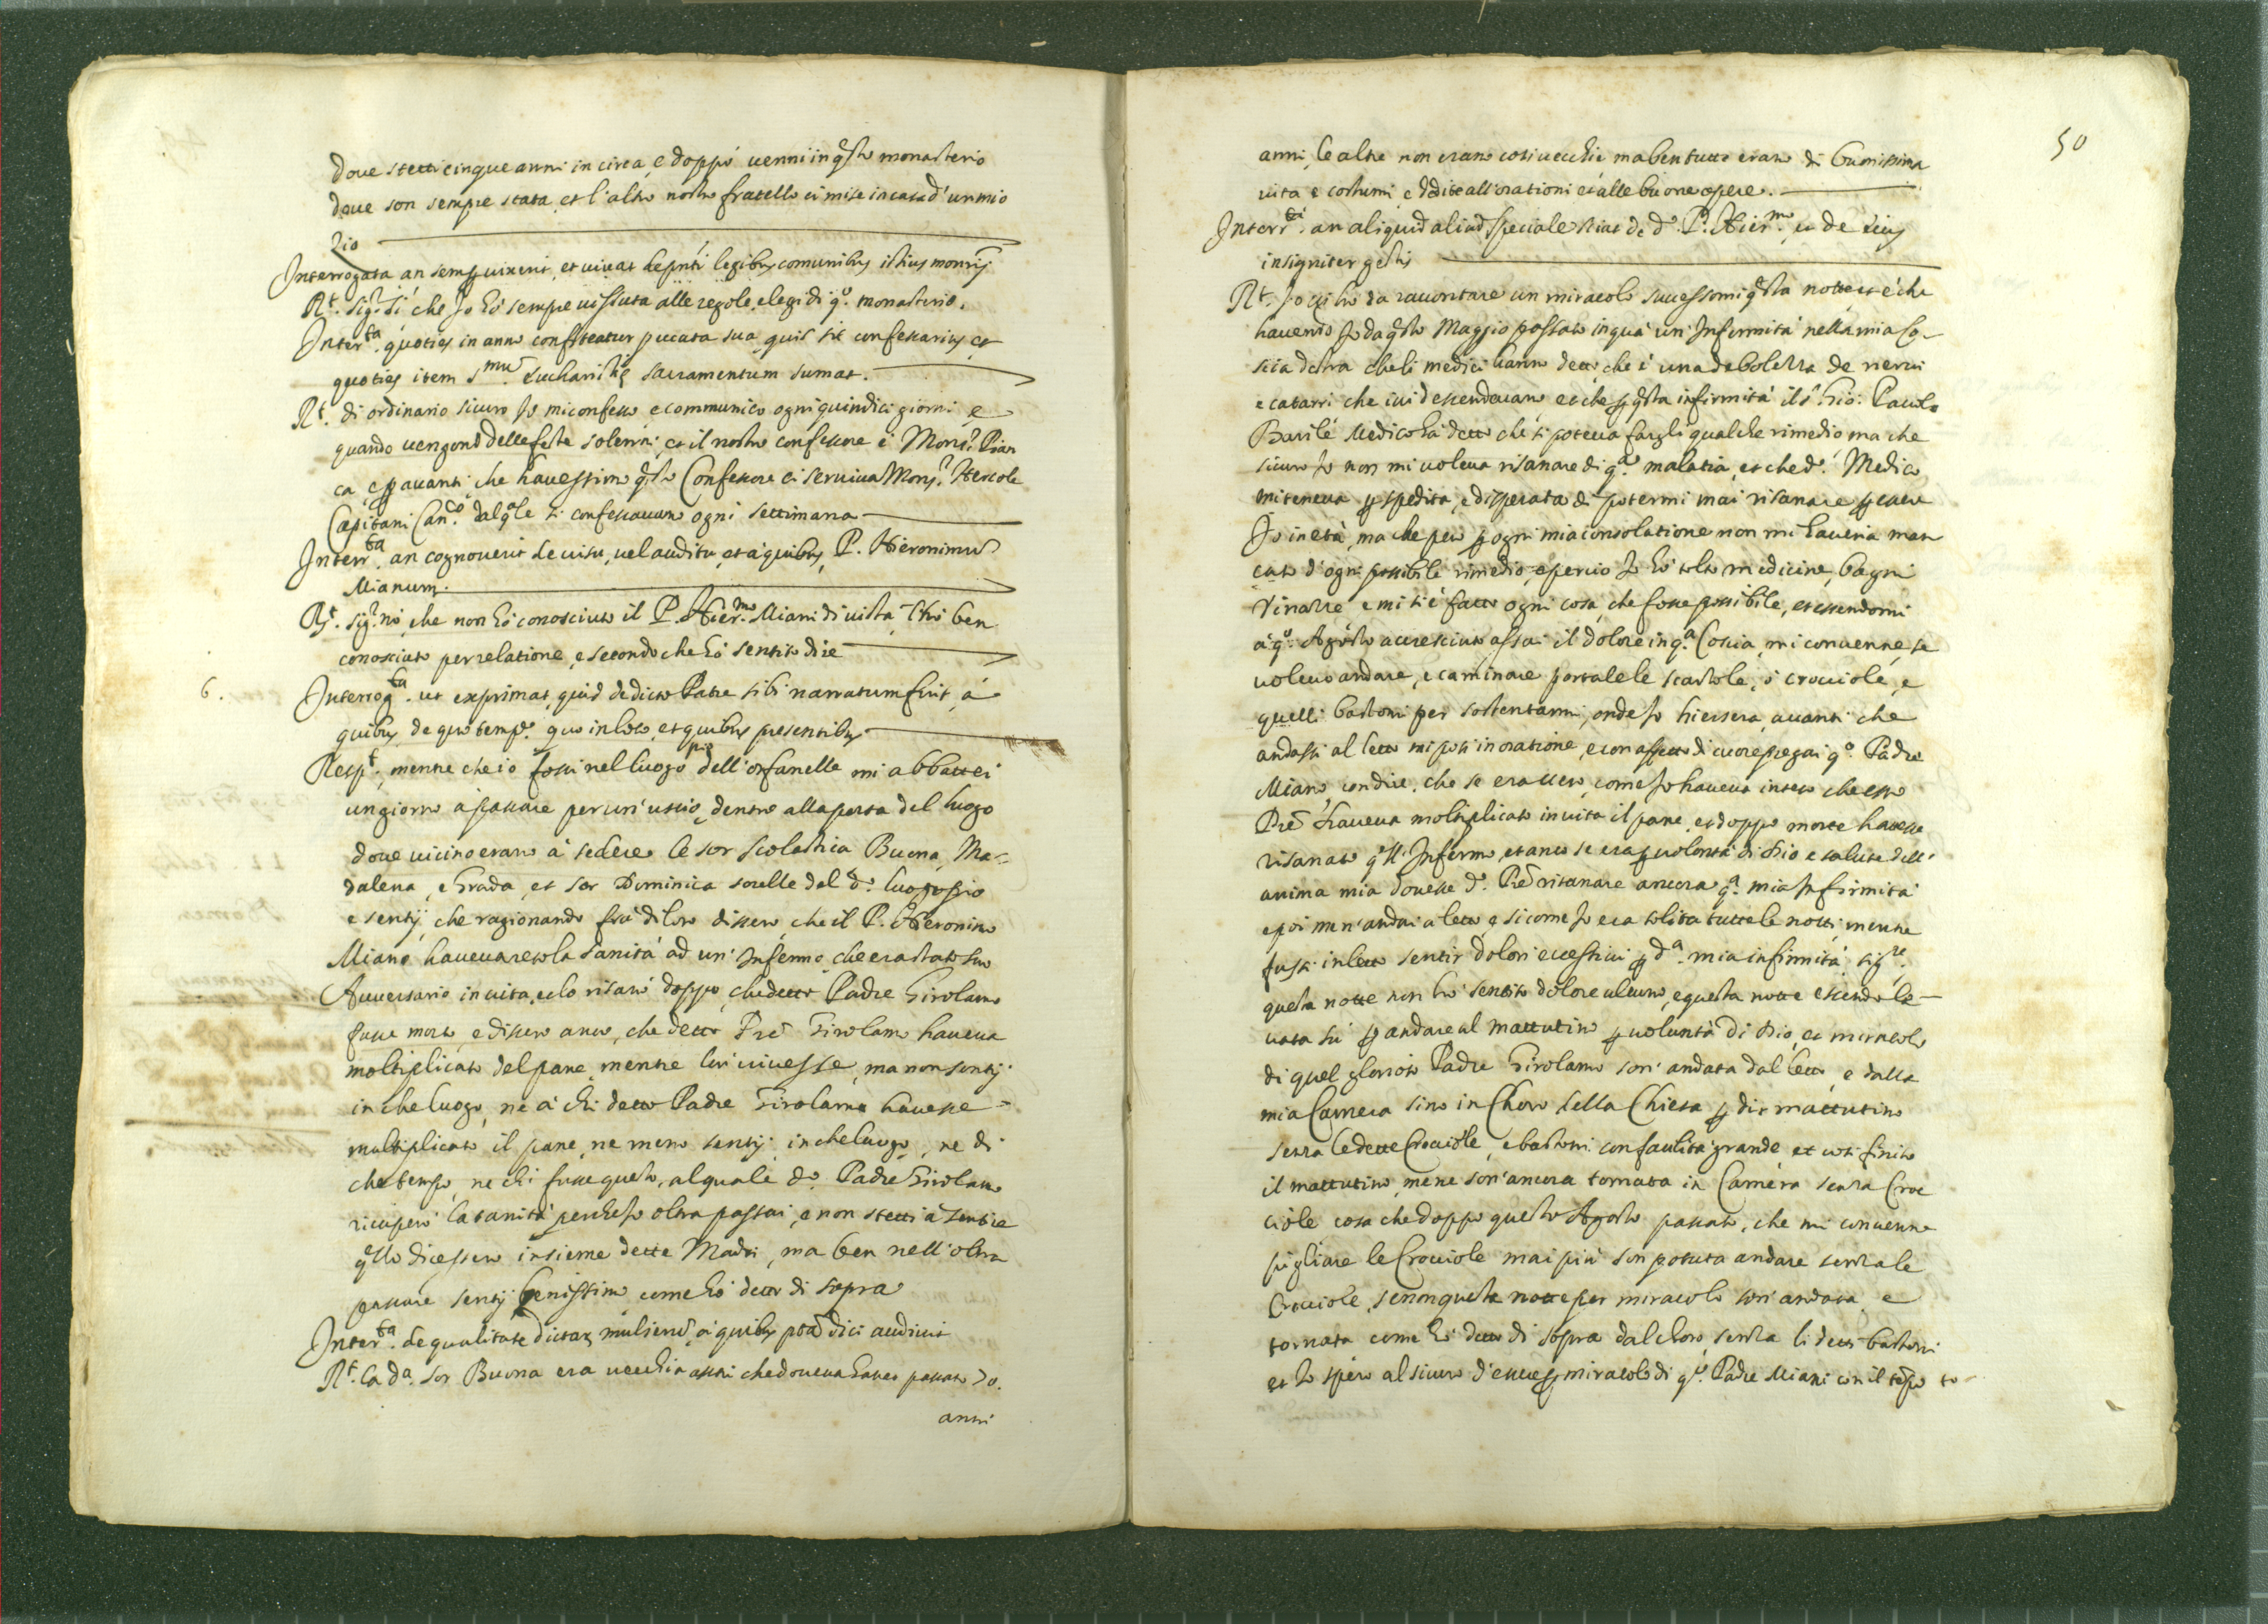 doue stetti cinque anni in circa, e doppò uenni in q̃sto monasterio
doue son sempre stata, et l'altro nostro fratello ci mise in casa d'un mio
Zio
Interrogata an semp uixerit, et uiuat de p̃nti legibus comunibus istius mon̄rij
Rᵗ. sigʳ. sì che Io hò sempre uissuta alle regole, e legi di qᵒ. monasterio.
Interʳᵗᵃ. quoties in anno confiteatur peccata sua, quis sit confessarius, et
quoties item Sᵐᵘ̄. Eucharistię sacramentum sumat.
Rᵗ. di ordinario sicuro Io mi confesso, e communico ogni quindici giorni, e
quando uengono delle feste solenni; et il nostro confessore è Monsʳ. Pian
ca, e p auanti, che hauessimo q̃sto Confessore ci seruiua Monsʳ. Hercole
Capitani Canᶜᵒ. dal qᵃle si confessauamo ogni settimana
Interrᵗᵃ. an cognouerit de uisu, uel auditu, et a' quibus, P. Hieronimū
Mianum.
Rᵗ. sigʳ. nò, che non hò conosciuto il P. Hierᵐᵒ. Miani di uista, l'hò ben
conosciuto per relatione, e secondo che hò sentito dire
6. Interrogᵗᵃ. ut exprimat, quid de dicto Patre sibi narratum fuit, à
quibus, de quo tempᵉ. quo in loco, et quibus presentibus
Respᵗ. mentre che io fossi nel luogo pio dell'orfanelle mi abbattei
un giorno à passare per un' uscio, dentro alla porta del luogo
doue uicino erano à sedere le sor Scolastica Buona, Ma-
dalena, e Grada, et sor Dominica sorelle del dᵒ. luogo pio
e sentij, che ragionando frà di loro dissero, che il P. Hieronimo
Miano haueua reso la sanità ad un' Infermo, che era stato suo
Auuersario in uita, e lo risanò doppo, che detto Padre Girolamo
fusse morto, e dissero anco, che detto Prē Girolamo haueua
moltiplicato del pane, mentre lui uiuesse, ma non sentij
in che luogo, ne à chi detto Padre Girolamo hauesse
multiplicato il pane, ne meno sentij in che luogo, ne di
che tempo, ne chi fusse questo, al quale dᵒ. Padre Girolamo
ricuperò la sanità perche Io oltra passai, e non stetti à sentire
q̃llo dicessero insieme dette Madri, ma ben nell'oltra
passare sentij benissimo come hò detto di sopra
Interʳᵗᵃ. de qualitate dictaꝝ mulierū, à quibus p̃ta dici audiuit
Rᵗ. la dᵃ. sor Buona era uecchia assai che doueua hauer passato 70.
anni
50
anni, le altre non erano cosi uecchie ma ben tutte erano di buonissima
uita e costumi, e ddite all'orationi et alle buone opere.
Interrᵗᵃ. an aliquid aliud speciale sciat de dᵒ. P. Hierᵐᵒ. et de eius
insigniter gestis
Rᵗ. Io gli hò da racontare un miracolo successomi q̃sta notte, et è che
hauendo Io da q̃sto Maggio passato in quà un' Infermità nella mia co-
scia destra che li medici hanno detto, che è una debolezza de nerui
e catarri che iui descendeuano, et che p q̃sta infirmità il sʳ. Gio: Paulo
Barilè Medico hà detto che si poteua fargli qualche rimedio ma che
sicuro Io non mi uoleua risanare di qᵃ. malatia, et che dᵒ. Medico
mi teneua p spedita, e disperata di potermi mai risanare p essere
Io in età, ma che però p ogni mia consolatione non mi haueria man
cato d'ogni possibile rimedio, e perciò Io hò tolto medicine, bagni
Vinazze e mi si è fatto ogni cosa, che fosse possibile, et essendomi
à qᵒ. Agosto accresciuto assai il dolore in qᵃ. Coscia, mi conuenne, se
uoleuo andare, e caminare portale le scartole, ò crocciole, e
quelli bastoni per sostentarmi, onde Io hiersera, auanti che
andassi al letto mi posi in oratione, e con affetto di cuore pregai qᵒ. Padre
Miano con dire, che se era uero, come Io haueua inteso che esso
Prē haueua moltiplicato in uita il pane, et doppo morte hauesse
risanato q̃ll' Infermo, et anco se era p uolontà di Dio e salute dell'
anima mia douesse dᵒ. Prē risanare ancora qᵃ. mia Infirmità
e poi men' andai a letto e si come Io era solita tutte le notti, mentre
fussi in letto sentir dolori eccessiui p dᵃ. mia infirmità sigʳᵉ.
questa notte non hò sentito dolore alcuno, e questa notte essendo le-
uata sù p andare al mattutino p uoluntà di Dio, et miracolo
di quel glorioso Padre Girolamo son' andata dal letto, e dalla
mia Camera sino in Choro della Chiesa p dir mattutino
senza le dette Crocciole, e bastoni con facilità grande et cosi finito
il mattutino mene son' ancora tornata in Camera senza Croc
ciole cosa che doppo questo Agosto passato, che mi conuenne
pigliare le Crocciole mai più son potuta andare senza le
Crocciole, senon questa notte per miracolo son' andata, e
tornata come hò detto di sopra dal choro senza li detti bastoni
et Io spero al sicuro d'essere p miracolo di qᵒ. Padre Miani con il tēpo to-